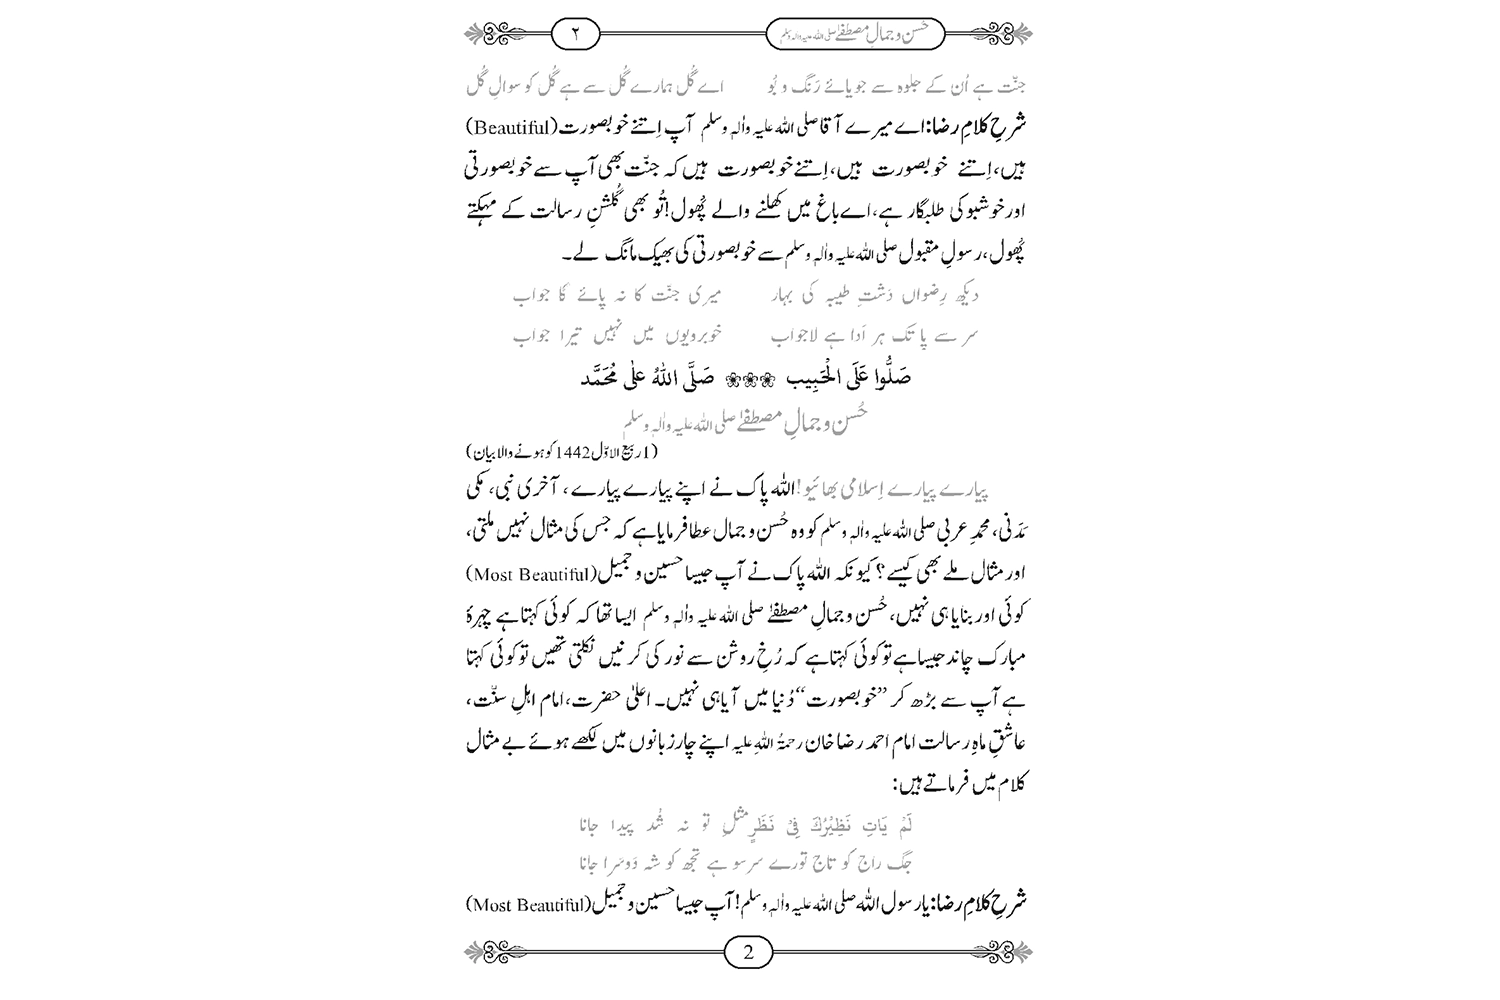 حُسن و جمالِ مصطفےٰ صلی اللہ علیہ واٰلہٖ وسلم ۲
جنّت ہے اُن کے جلوہ سے جویائے رَنگ و بُو اے گُل ہمارے گُل سے ہے گُل کو سوالِ گُل
شرحِ کلامِ رضا: اے میرے آقا صلی اللہ علیہ واٰلہٖ وسلم آپ اِتنے خوبصورت (Beautiful)
ہیں، اِتنے خوبصورت ہیں، اِتنے خوبصورت ہیں کہ جنّت بھی آپ سے خوبصورتی
اور خوشبو کی طلبگار ہے، اے باغ میں کھلنے والے پُھول! تُو بھی گُلشنِ رسالت کے مہکتے
پُھول، رسولِ مقبول صلی اللہ علیہ واٰلہٖ وسلم سے خوبصورتی کی بھیک مانگ لے۔
دیکھ رِضواں دَشتِ طیبہ کی بہار میری جنّت کا نہ پائے گا جواب
سر سے پا تک ہر اَدا ہے لاجواب خوبرویوں میں نہیں تیرا جواب
صَلُّوا عَلَی الْحَبِیب ❀❀❀ صَلَّی اللّٰهُ عَلٰی مُحَمَّد
حُسن و جمالِ مصطفےٰ صلی اللہ علیہ واٰلہٖ وسلم
(1ربیع الاوّل 1442 کو ہونے والا بیان)
پیارے پیارے اِسلامی بھائیو! اللہ پاک نے اپنے پیارے پیارے، آخری نبی، مکی
مَدَنی، محمدِ عربی صلی اللہ علیہ واٰلہٖ وسلم کو وہ حُسن و جمال عطا فرمایا ہے کہ جس کی مثال نہیں ملتی،
اور مثال ملے بھی کیسے؟ کیونکہ اللہ پاک نے آپ جیسا حسین و جمیل (Most Beautiful)
کوئی اور بنایا ہی نہیں، حُسن و جمالِ مصطفےٰ صلی اللہ علیہ واٰلہٖ وسلم ایسا تھا کہ کوئی کہتا ہے چہرۂ
مبارک چاند جیسا ہے تو کوئی کہتا ہے کہ رُخِ روشن سے نور کی کرنیں نکلتی تھیں تو کوئی کہتا
ہے آپ سے بڑھ کر ”خوبصورت“ دُنیا میں آیا ہی نہیں۔ اعلیٰ حضرت، امام اہلِ سنّت،
عاشقِ ماہِ رسالت امام احمد رضا خان رحمۃُ اللہِ علیہ اپنے چار زبانوں میں لکھے ہوئے بے مثال
کلام میں فرماتے ہیں:
لَمْ یَاتِ نَظِیْرُكَ فِیْ نَظَرٍ مثلِ تو نہ شُد پیدا جانا
جَگ راج کو تاج تورے سر سو ہے تجھ کو شہِ دَوسَرا جانا
شرحِ کلامِ رضا: یارسول اللہ صلی اللہ علیہ واٰلہٖ وسلم! آپ جیسا حسین و جمیل (Most Beautiful)
2